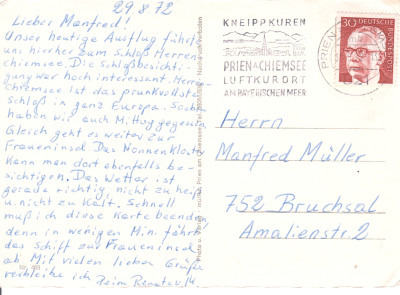 29 8 72
Lieber Manfred!
Unser heutige Ausflug führt
uns hierher zum Schloß Herren
chiemsee. Die Schloßbesichti
gung war hoch interessant. Herren
chiemsee ist das prunkvollste
schloß in ganz Europa. Soeben
haben wir auch Mittag gegessen
Gleich geht es weiter zur
Fraueninsel. Das Nonnenkloster
kann man dort ebenfalls be-
sichtigen. Das Wetter ist
gerade richtig, nicht zu heiß
u. nicht zu kalt. Schnell
muß ich diese Karte beenden
denn in wenigen Min. fährt
das Schiff zur Fraueninsel
ab. Mit vielen lieben Grüßen
verbleibe ich
KNEIPPKUREN
PRIEN A CHIEMSEE
LUFTKURORT
AM BAYERISCHEN MEER
PRIEN
821
30
DEUTSCHE
BUNDESPOST
Herrn
Manfred Müller
752 Bruchsal
Amalienstr. 2